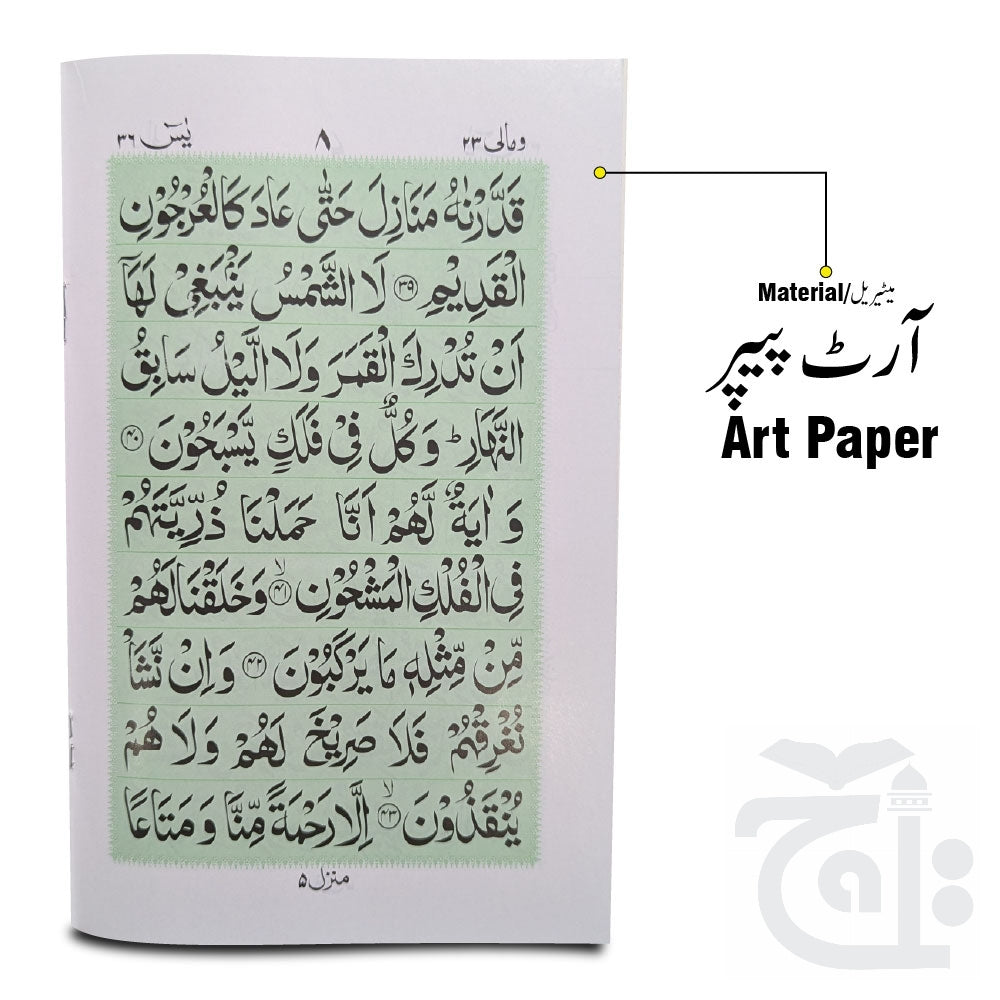 ومالی ۲۳ ۸ یٰسٓ ۳۶
قَدَّرْنٰهُ مَنَازِلَ حَتّٰی عَادَ كَالْعُرْجُوْنِ
الْقَدِیْمِ ۳۹ لَا الشَّمْسُ یَنْۢبَغِیْ لَهَاۤ
اَنْ تُدْرِكَ الْقَمَرَ وَلَا الَّیْلُ سَابِقُ
النَّهَارِ ؕ وَكُلٌّ فِیْ فَلَكٍ یَّسْبَحُوْنَ ۴۰
وَ اٰیَةٌ لَّهُمْ اَنَّا حَمَلْنَا ذُرِّیَّتَهُمْ
فِی الْفُلْكِ الْمَشْحُوْنِ ۙ ۴۱ وَخَلَقْنَا لَهُمْ
مِّنْ مِّثْلِهٖ مَا یَرْكَبُوْنَ ۴۲ وَاِنْ نَّشَاْ
نُغْرِقْهُمْ فَلَا صَرِیْخَ لَهُمْ وَلَا هُمْ
یُنْقَذُوْنَ ۙ ۴۳ اِلَّا رَحْمَةً مِّنَّا وَ مَتَاعًا
منزل ۵
Material/میٹیریل
آرٹ پیپر
Art Paper